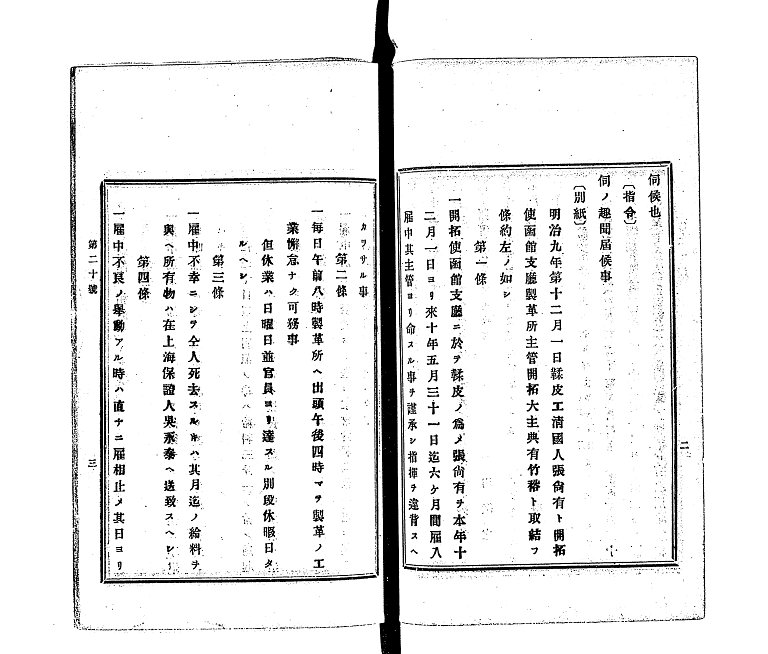 伺候也
〔指令〕
伺ノ趣聞屆候事
〔別紙〕
明治九年第十二月一日鞣皮工清國人張尙有ト開拓
使函館支廳製革所主管開拓大主典有竹裕ト取結フ
條約左ノ如シ
第一條
一開拓使函館支廳ニ於テ鞣皮ノ爲メ張尙有ヲ本年十
二月一日ヨリ來十年五月三十一日迄六ケ月間雇入
雇中其主管ヨリ命スル事ヲ謹承シ指揮ヲ違背スヘ
二
カラサル事
第二條
一每日午前八時製革所ヘ出頭午後四時マテ製革ノ工
業懈怠ナク可務事
但休業ハ日曜日並官員ヨリ達スル別段休暇日タ
ルヘシ
第三條
一雇中不幸ニシテ仝人死去スルトキハ其月迄ノ給料ヲ
與ヘ所有物ハ在上海保證人吳永泰ヘ送致スヘシ
第四條
一雇中不良ノ擧動アル時ハ直チニ雇相止メ其日ヨリ
第二十號
三